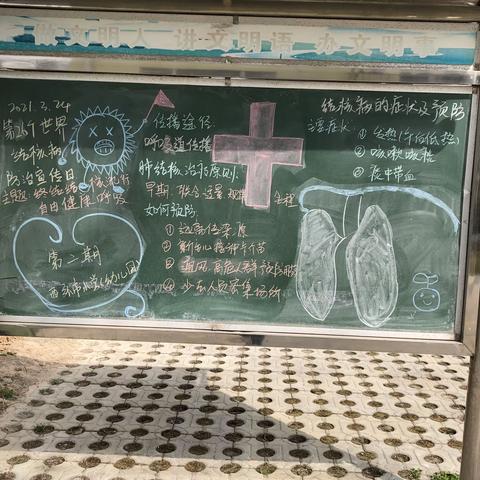 做文明人 讲文明语 办文明事
2021.3.24
第26个世界
结核病
防治宣传日
主题:终结结核流行
自由健康呼吸
第二期
传播途径:
呼吸道传播
肺结核治疗原则:
早期 联合 适量 规律 全程
如何预防:
① 远离传染原
② 新生儿接种卡苗
③ 通风 高危人群预防服
④ 少去人员密集场所
结核病的症状及预防
主要症状
① 发热(午后低热)
② 咳嗽咳痰
③ 痰中带血